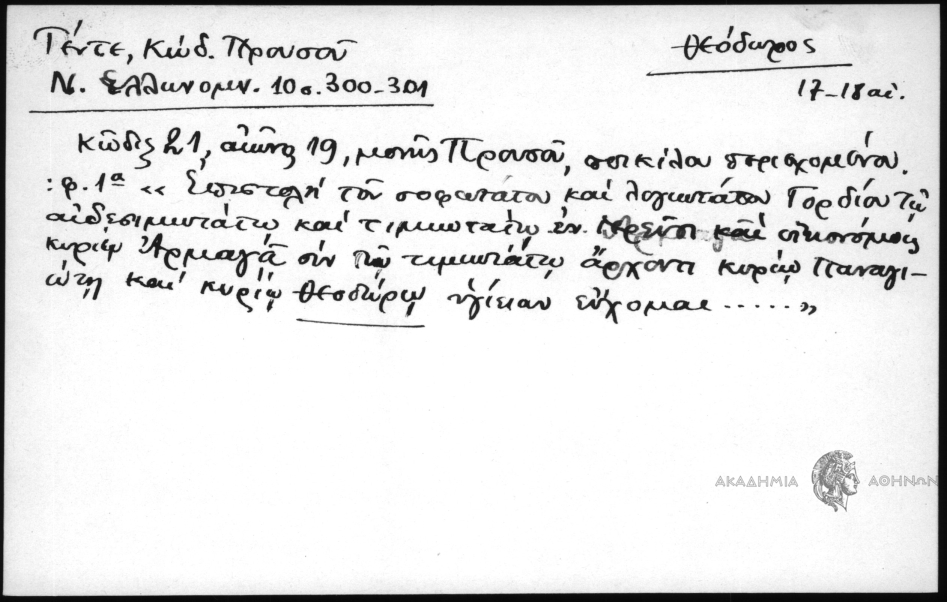 Γέντε, Κώδ. Προυσοῦ
Θεόδωρος
Ν. Ἑλληνομν. 10 σ. 300-301
17-18 αἰ.
Κῶδιξ 21, αἰῶνος 19, μονῆς Προυσοῦ, ποικίλου περιεχομένου.
: φ. 1α « Ἐπιστολή τοῦ σοφωτάτου καί λογιωτάτου Γορδίου τῷ
αἰδεσιμωτάτῳ και τιμιωτάτῳ ἐν καί οἰκονόμοις
κυρίῳ Ἀρμαγᾶ σύν τῷ τιμιωτάτῳ ἄρχοντι κυρίῳ Παναγι-
ώτῃ καί κυρίῳ Θεοδώρῳ ὑγίειαν εὔχομαι ...... »
ΑΚΑΔΗΜΙΑ ΑΘΗΝΩΝ